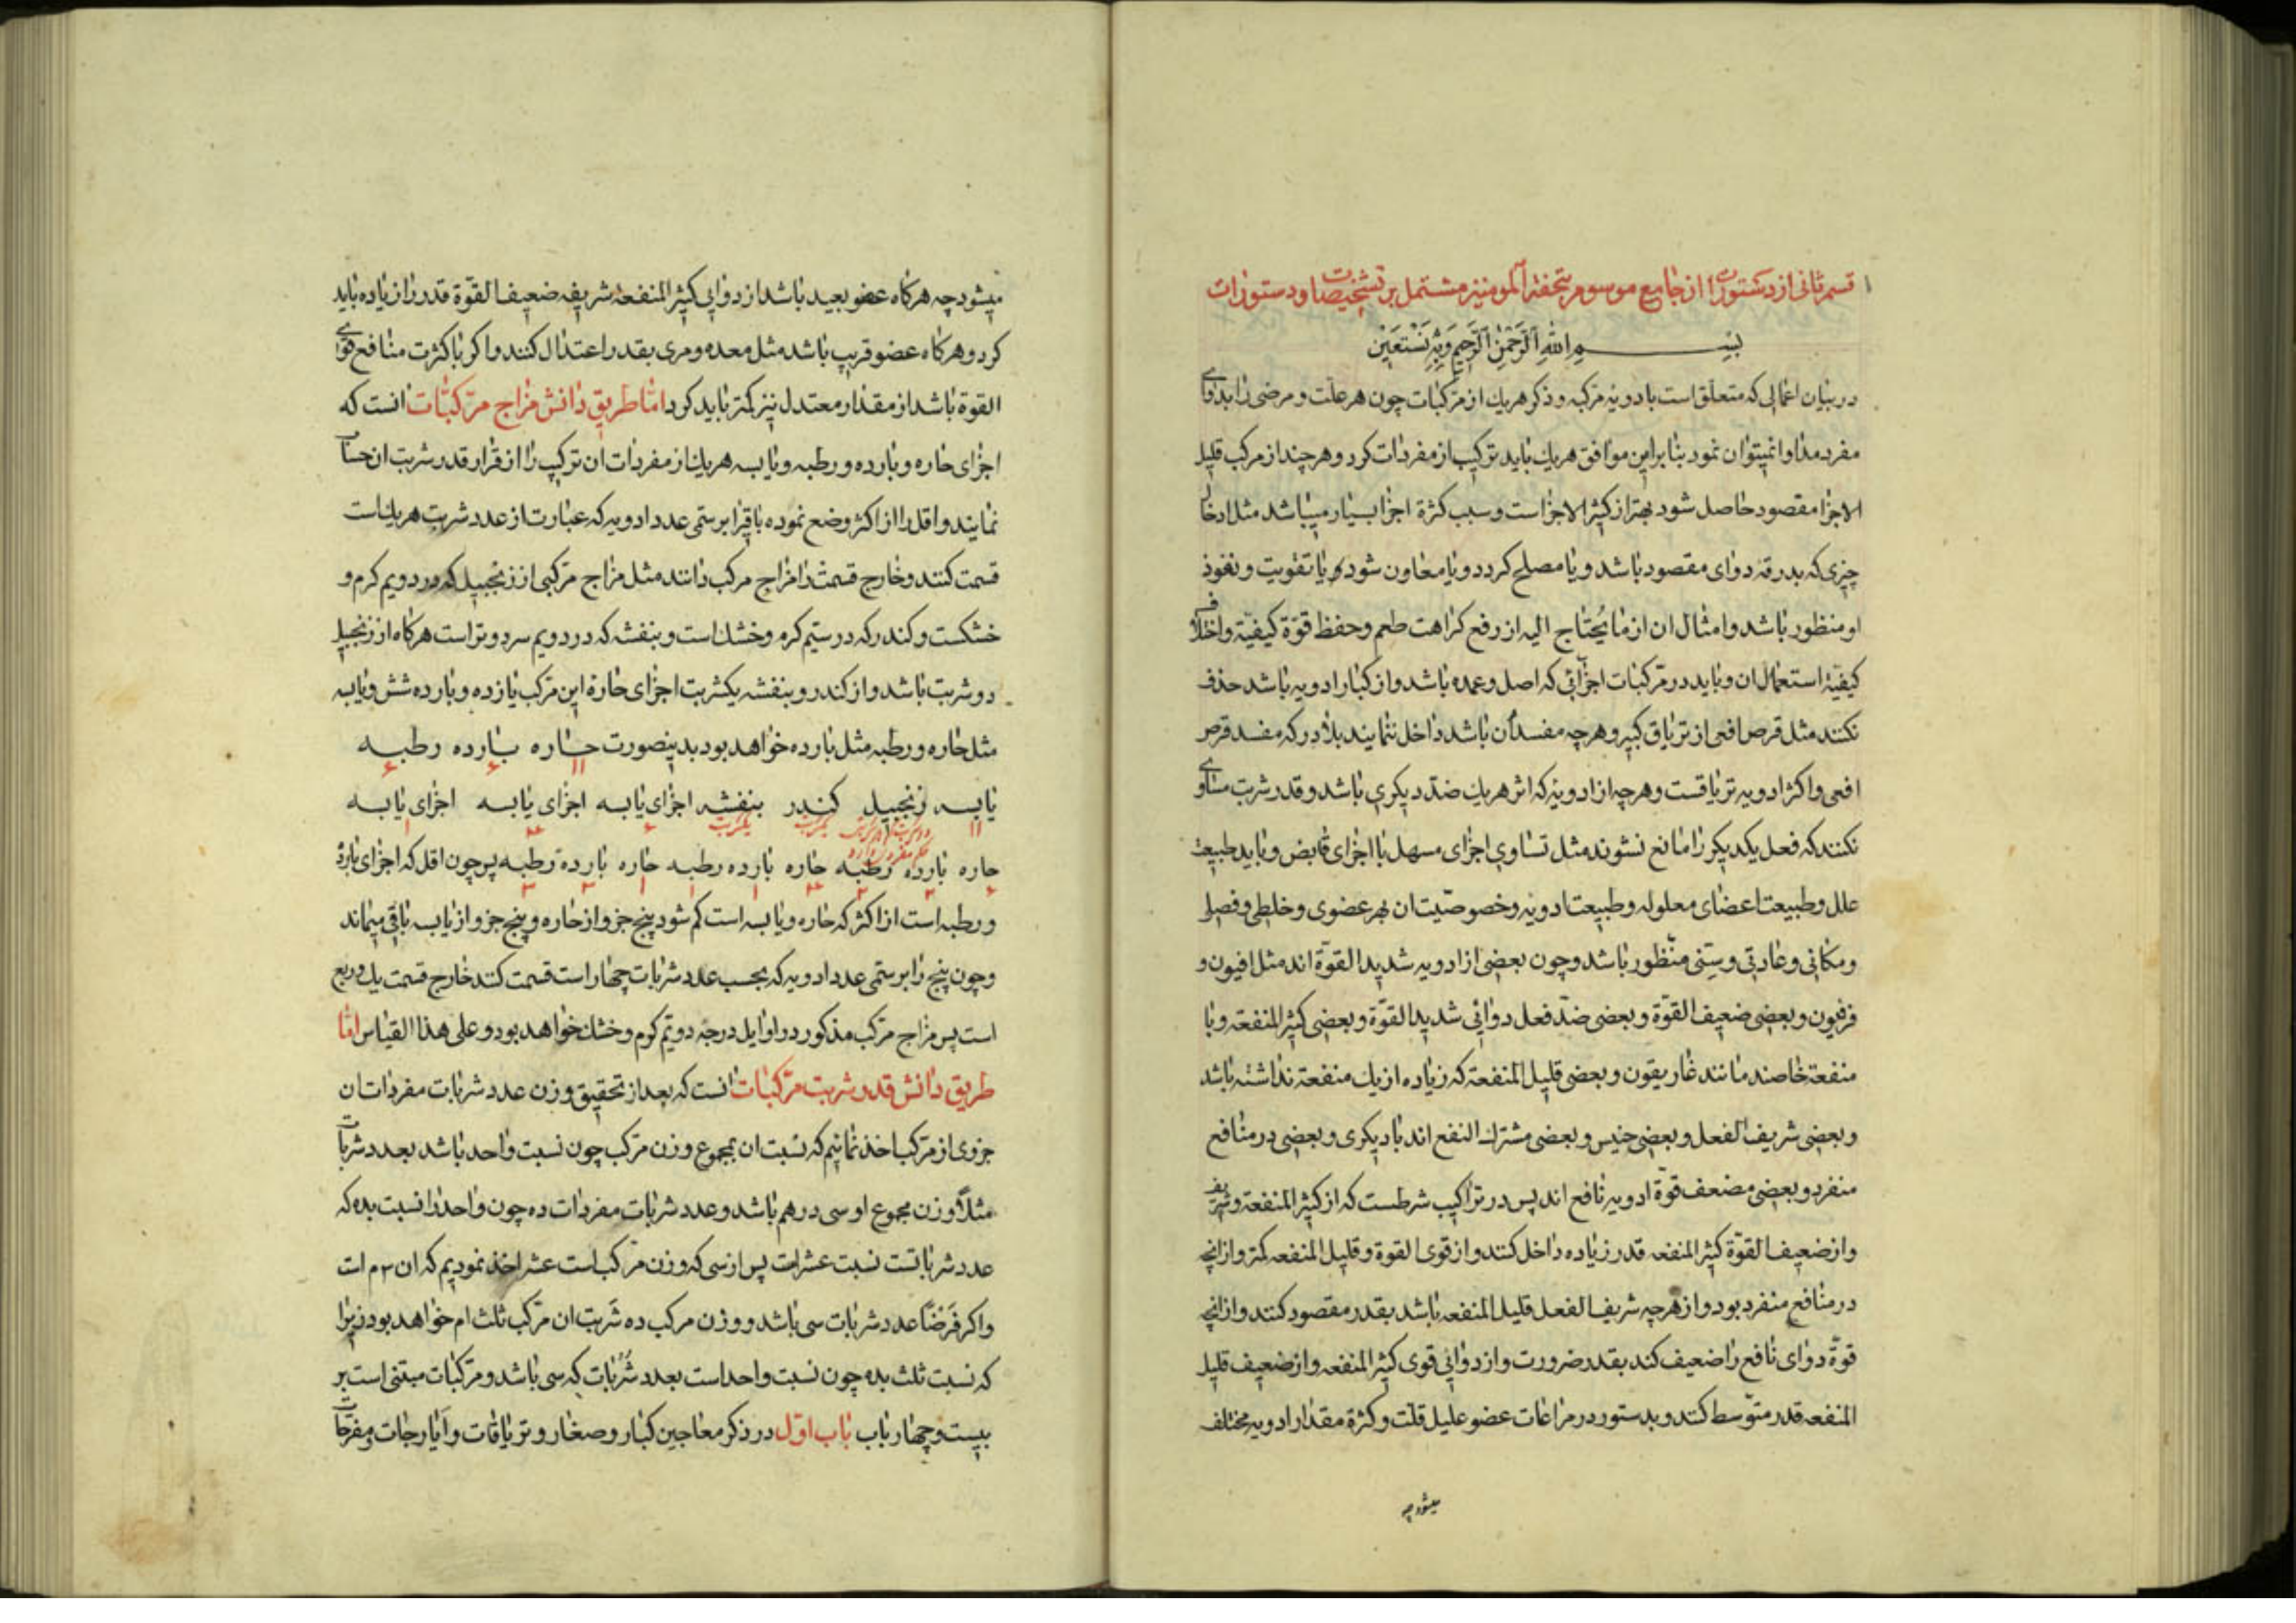 قسم ثانی از دستورات از جامع موسوم بتحفة المومنین مشتمل بر تشخیصات و دستورات
بسم الله الرحمن الرحیم وبه نستعین
در بیان اعمالی که متعلق است بادویه مرکبه و ذکر هریك از مرکبات چون هر علت و مرضی را بدوای
مفرد مداوا نمیتوان نمود بنابراین موافق هریك باید ترکیب از مفردات کرد و هرچند از مرکب قلیل
الاجزا مقصود حاصل شود بهتر از کثیر الاجزا است و سبب کثرة اجزا بسیار میباشد مثل ادخال
چیزی که بدرقه دوای مقصود باشد و یا مصلح کردد و یا معاون شود و یا تقویت و نفوذ
او منظور باشد و امثال ان از ما یحتاج الیه از رفع کراهت طعم و حفظ قوة کیفیة و اختلاف
کیفیة استعمال ان و باید در مرکبات اجزائی که اصل و عمده باشد و از کبار ادویه باشد حذف
نکنند مثل قرص افعی از تریاق کبیر و هرچه مفسد آن باشد داخل ننمایند بلادر که مفسد قرص
افعی و اکثر ادویه تریاقست و هرچه از ادویه که اثر هریك ضد دیکری باشد و قدر شربت مساوی
نکنند که فعل یکدیکر را مانع نشوند مثل تساوی اجزای مسهل با اجزای قابض و باید طبیعت
علل و طبیعت اعضای معلوله و طبیعت ادویه و خصوصیت ان بهر عضوی و خلطی و فصلی
و مکانی و عادتی و سنی منظور باشد و چون بعضی از ادویه شدید القوة اند مثل افیون و
فرفیون و بعضی ضعیف القوة و بعضی ضد فعل دوائی شدید القوة و بعضی کثیر المنفعة و با
منفعة خاصند مانند غاریقون و بعضی قلیل المنفعة که زیاده از یك منفعة نداشته باشد
و بعضی شریف الفعل و بعضی خسیس و بعضی مشترك النفع اند با دیکری و بعضی در منافع
منفرد و بعضی مضعف قوة ادویه نافع اند پس در تراکیب شرطست که از کثیر المنفعة و شریف
و از ضعیف القوة کثیر المنفعه قدر زیاده داخل کنند و از قوی القوة و قلیل المنفعه کمتر و از انچه
در منافع منفرد بود و از هرچه شریف الفعل قلیل المنفعه باشد بقدر مقصود کنند و از انچه
قوة دوای نافع را ضعیف کند بقدر ضرورت و از دوائی قوی کثیر المنفعه و از ضعیف قلیل
المنفعه قدر متوسط کنند و بدستور در مراعات عضو علیل قلت و کثرة مقدار ادویه مختلف
میشود چه
میشود چه هرکاه عضو بعید باشد از دوائی کثیر المنفعة شریفه ضعیف القوة قدر زاز یاده باید
کرد و هرکاه عضو قریب باشد مثل معده و مری بقدر اعتدال کنند و اکر با کثرت منافع قوی
القوة باشد از مقدار معتدل نیز کمتر باید کرد اما طریق دانش مزاج مرکبات انست که
اجزای حاره و بارده و رطبه و یابسه هریك از مفردات ان ترکیب را از قرار قدر شربت ان حساب
نمایند و اقل را از اکثر وضع نموده باقی را بر سمی عدد ادویه که عبارت از عدد شربت هریك است
قسمت کنند و خارج قسمت را مزاج مرکب دانند مثل مزاج مرکبی از زنجبیل که در دویم کرم و
خشکست و کندر که در سیم کرم و خشك است و بنفشه که در دویم سرد و تر است هرکاه از زنجبیل
دو شربت باشد و از کندر و بنفشه یکشربت اجزای حارة این مرکب یازده و بارده شش و یابسه
مثل حاره و رطبه مثل بارده خواهد بود بدینصورت حاره بارده رطبه
یابسه زنجبیل کندر بنفشه اجزای یابسه اجزای یابسه اجزای یابسه
حاره بارده رطبه حاره بارده رطبه حاره بارده رطبه پس چون اقل که اجزای بارده
و رطبه است از اکثر که حاره و یابسه است کم شود پنج جزو از حاره و پنج جزو از یابسه باقی میماند
و چون پنج را بر سمی عدد ادویه که بحسب عدد شربات چهار است قسمت کنند خارج قسمت یك و ربع
است پس مزاج مرکب مذکور در اوایل درجه دویم کرم و خشك خواهد بود و علی هذا القیاس اما
طریق دانش قدر شربت مرکبات انست که بعد از تحقیق وزن عدد شربات مفردات ان
جزوی از مرکب اخذ نمائیم که نسبت ان بمجموع وزن مرکب چون نسبت واحد باشد بعدد شربات
مثلا وزن مجموع او سی درهم باشد و عدد شربات مفردات ده چون واحد را نسبت بده که
عدد شرباتست نسبت عشر است پس از سی که وزن مرکب است عشر اخذ نمودیم که ان ۳ م است
و اکر فرضا عدد شربات سی باشد و وزن مرکب ده شربت ان مرکب ثلث ام خواهد بود زیرا
که نسبت ثلث بده چون نسبت واحد است بعدد شربات که سی باشد و مرکبات مبتنی است بر
بیست و چهار باب باب اول در ذکر معاجین کبار و صغار و تریاقات و ایارجات و مفرحات